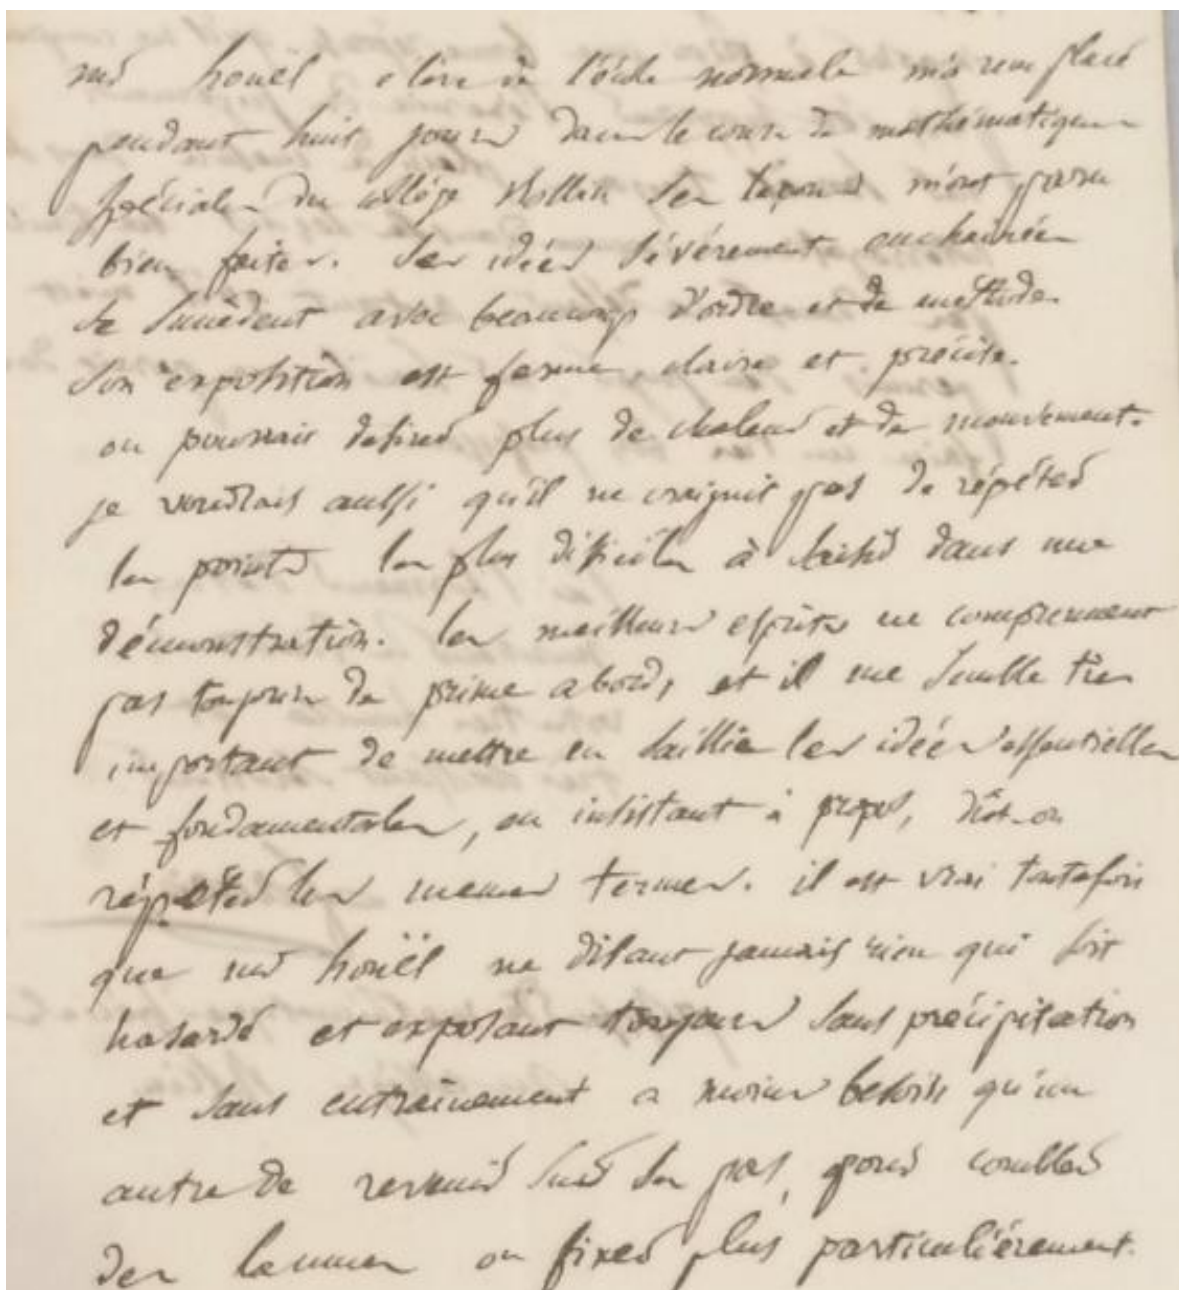 mr houël élève de l'école normale m'a remplacé
pendant huit jours dans le cours de mathématiques
spéciales du collège Rollin ses leçons m'ont paru
bien faites. Ses idées sévèrement enchainées
se succèdent avec beaucoup d'ordre et de méthode.
Son exposition est ferme, claire et précise.
on pourrait desirer plus de chaleur et de mouvement.
je voudrais aussi qu'il ne craignit pas de répéter
les points les plus difficiles à saisir dans une
démonstration. les meilleurs esprits ne comprennent
pas toujours de prime abord, et il me semble très
important de mettre en saillie les idées essentielles
et fondamentales, en insistant à propos, dût-on
répéter les memes termes. il est vrai toutefois
que mr houël ne disant jamais rien qui soit
hasardé et exposant toujours sans précipitation
et sans entrainement a moins besoin qu'un
autre de revenir sur ses pas, pour combler
des lacunes ou fixer plus particulièrement.